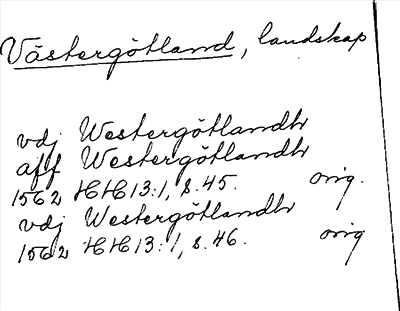 Västergötland, landskap
vdj Westergötlandh
aff Westergötlandh
1562 HH 13:1, s. 45. orig.
vdj Westergötlandh
1562 HH 13:1, s. 46. orig